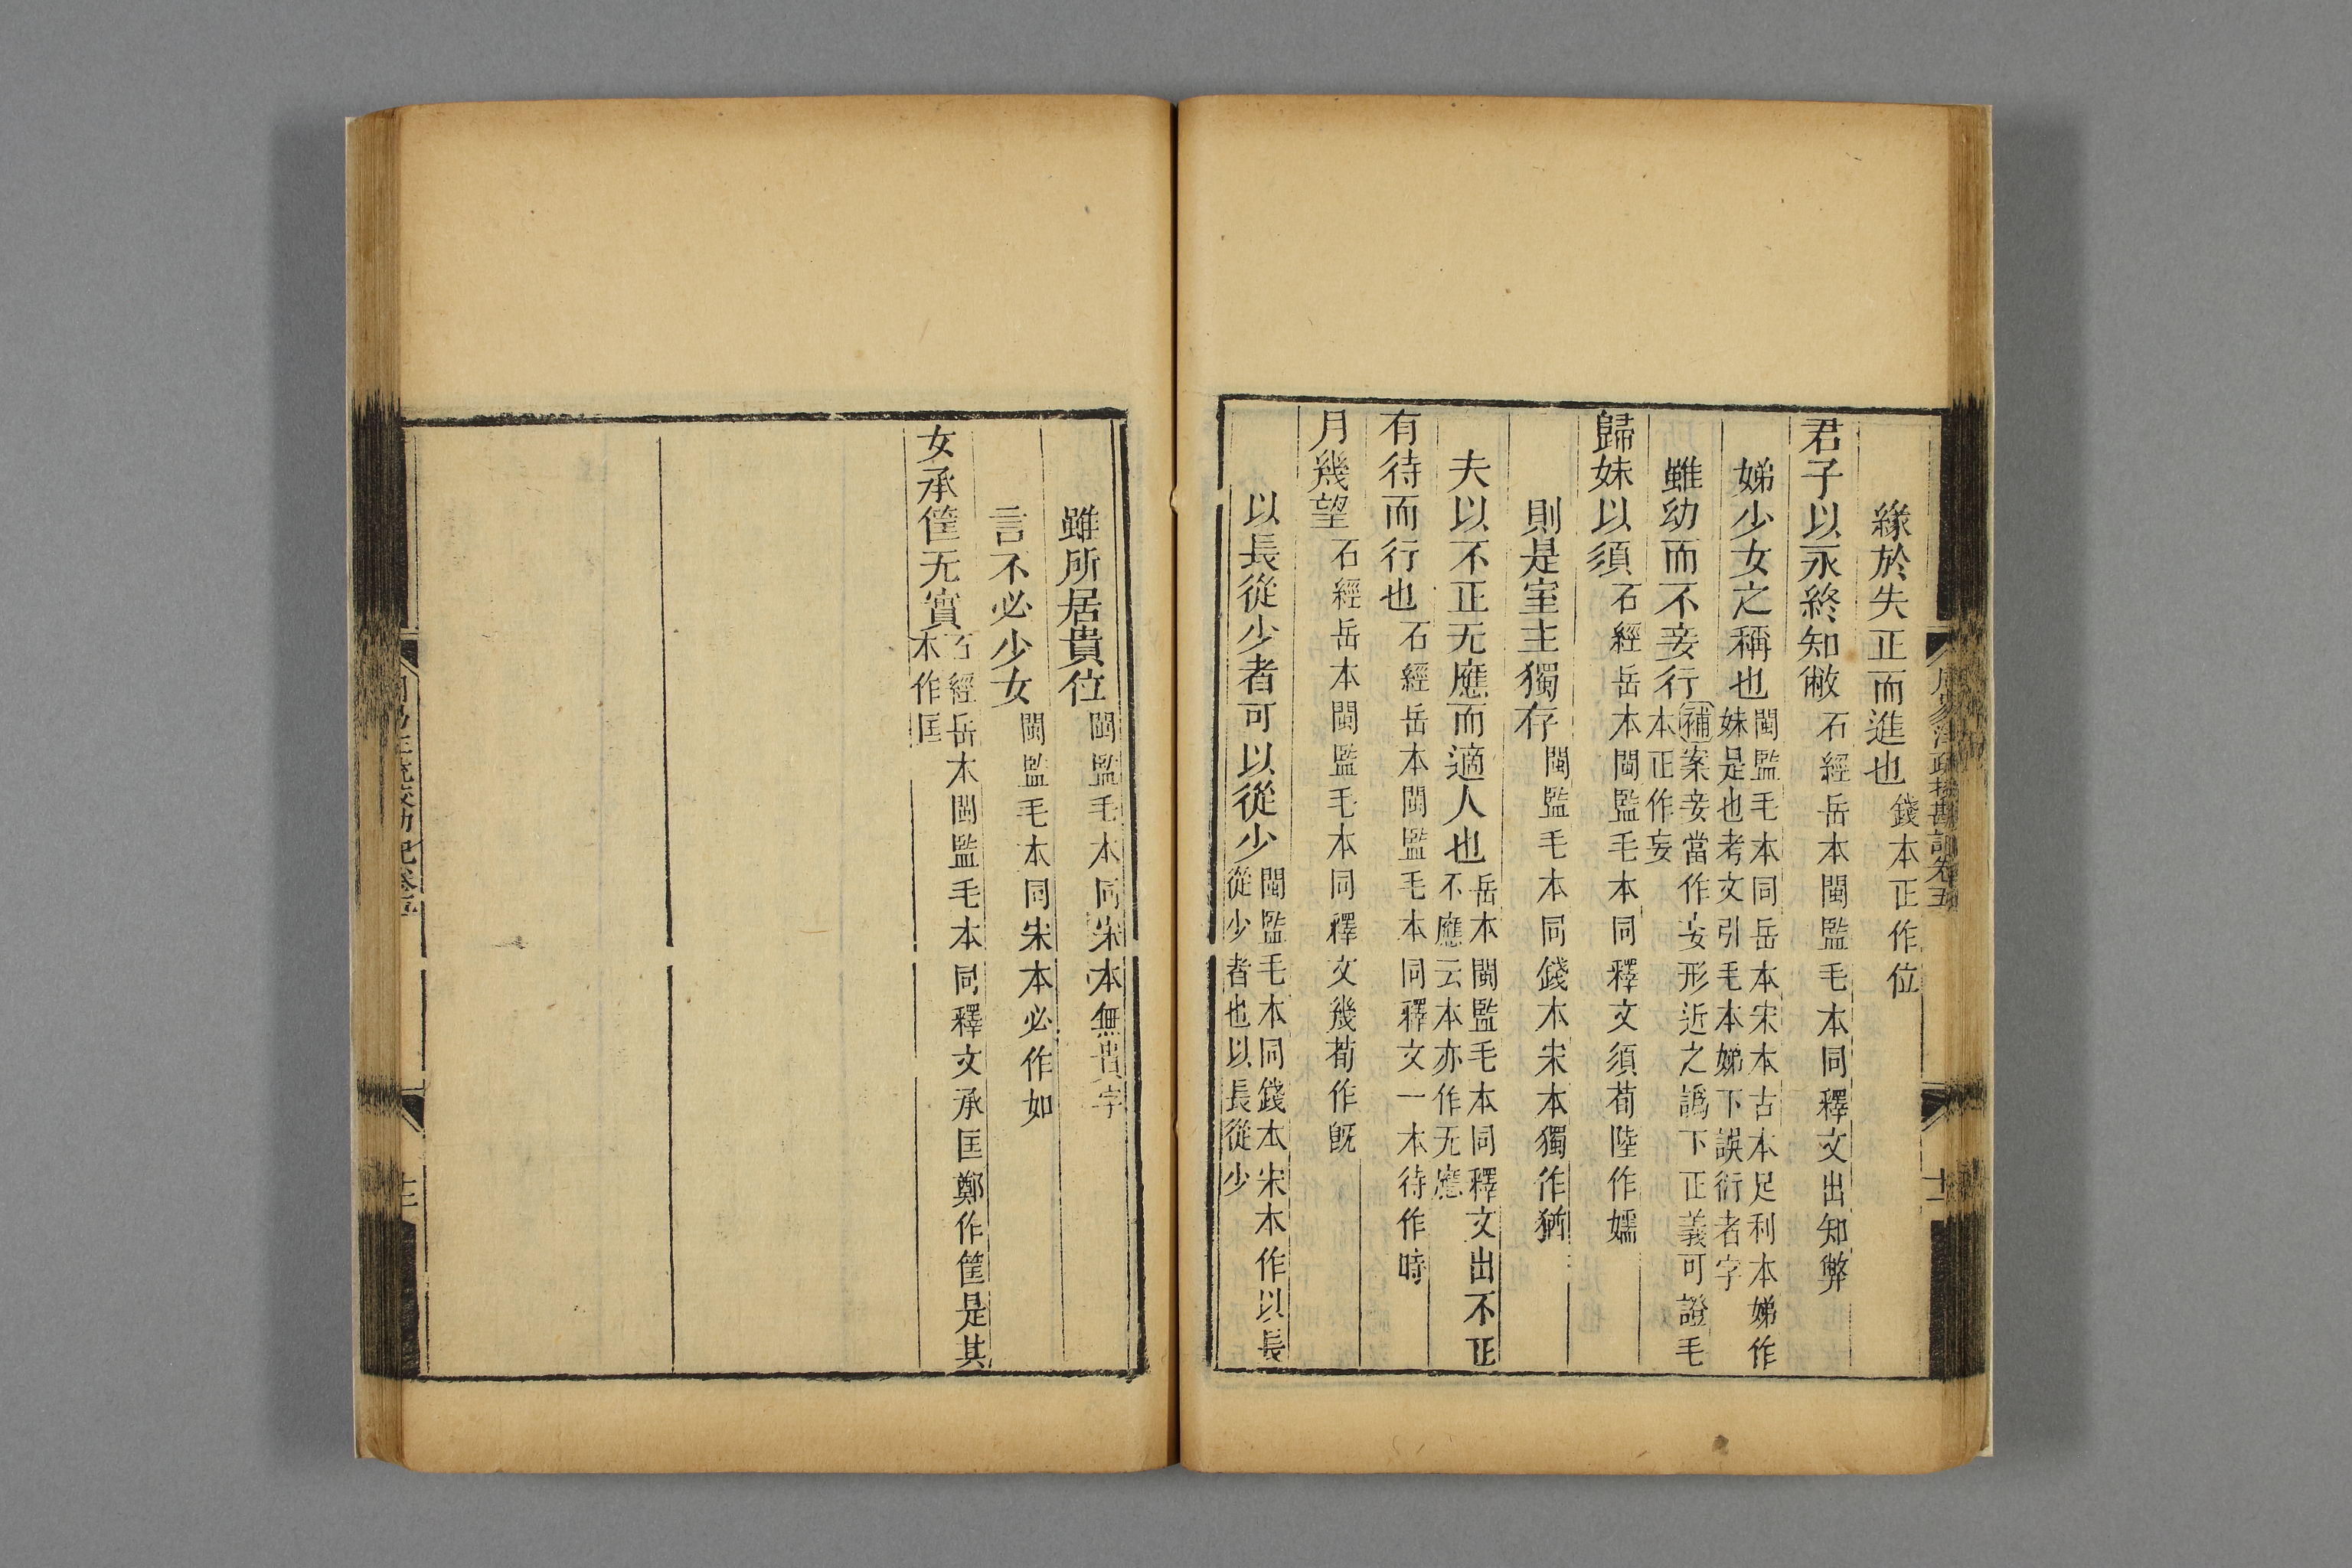 周易注疏挍勘記卷五
十二
緣於失正而進也錢本正作位
君子以永終知敝石經岳本閩監毛本同釋文出知弊
娣少女之稱也閩監毛本同岳本宋本古本足利本娣作妹是也考文引毛本娣下誤衍者字
雖幼而不妾行補案妾當作妄形近之譌下正義可證毛本正作妄
歸妹以須石經岳本閩監毛本同釋文須荀陸作嬬
則是室主獨存閩監毛本同錢本宋本獨作猶
夫以不正无應而適人也岳本閩監毛本同釋文出不正不應云本亦作无應
有待而行也石經岳本閩監毛本同釋文一本待作時
月幾望石經岳本閩監毛本同釋文幾荀作旣
以長從少者可以從少閩監毛本同錢本宋本作以長從少者也以長從少
雖所居貴位閩監毛本同宋本無所字
言不必少女閩監毛本同宋本必作如
女承筐无實石經岳本閩監毛本同釋文承匡鄭作筐是其本作匡